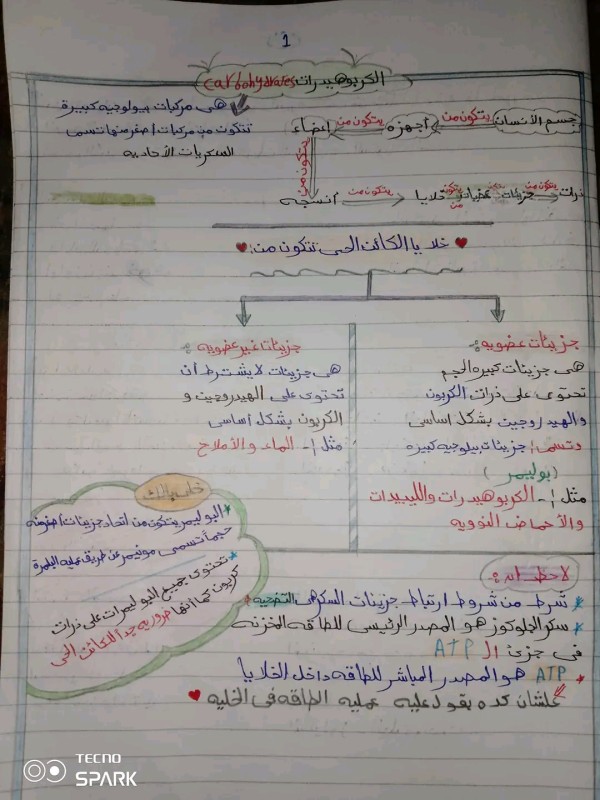 1
الكربوهيدرات carbohydrates
هى مركبات بيولوجيه كبيرة
تتكون من مركبات اصغر منها تسمى
السكريات الأحاديه
جسم الأنسان يتكون من أجهزه يتكون من اعضاء
يتكون من
انسجه يتكون من خلايا يتكون من عضيات يتكون من جزيئات يتكون من ذرات
خلايا الكائن الحى تتكون من:
جزيئات عضويه:
هى جزيئات كبيره الحجم
تحتوى على ذرات الكربون
والهيدروجين بشكل اساسى
وتسمى جزيئات بيولوجيه كبيره
(بوليمر)
مثل :- الكربوهيدرات والليبيدات
والأحماض النوويه
جزيئات غير عضويه:
هى جزيئات لا يشترط ان
تحتوى على الهيدروجين و
الكربون بشكل أساسى
مثل :- الماء والأملاح
خلى بالك
البوليمر يتكون من اتحاد جزيئات اصغر منه
حجماً تسمى مونيمر عن طريق عمليه البلمرة
تحتوى جميع البوليمرات على ذرات
كربون كما أنها ضروريه جداً للكائن الحى
لاحظ انه:
شرط من شروط ارتباط جزيئات السكر هى التضحيه
سكر الجلوكوز هو المصدر الرئيسى للطاقه المخزنه
فى جزئ ال ATP
ATP هو المصدر المباشر للطاقه داخل الخلايا
علشان كده بقول عليه عمليه الطاقه فى الخليه
TECNO
SPARK